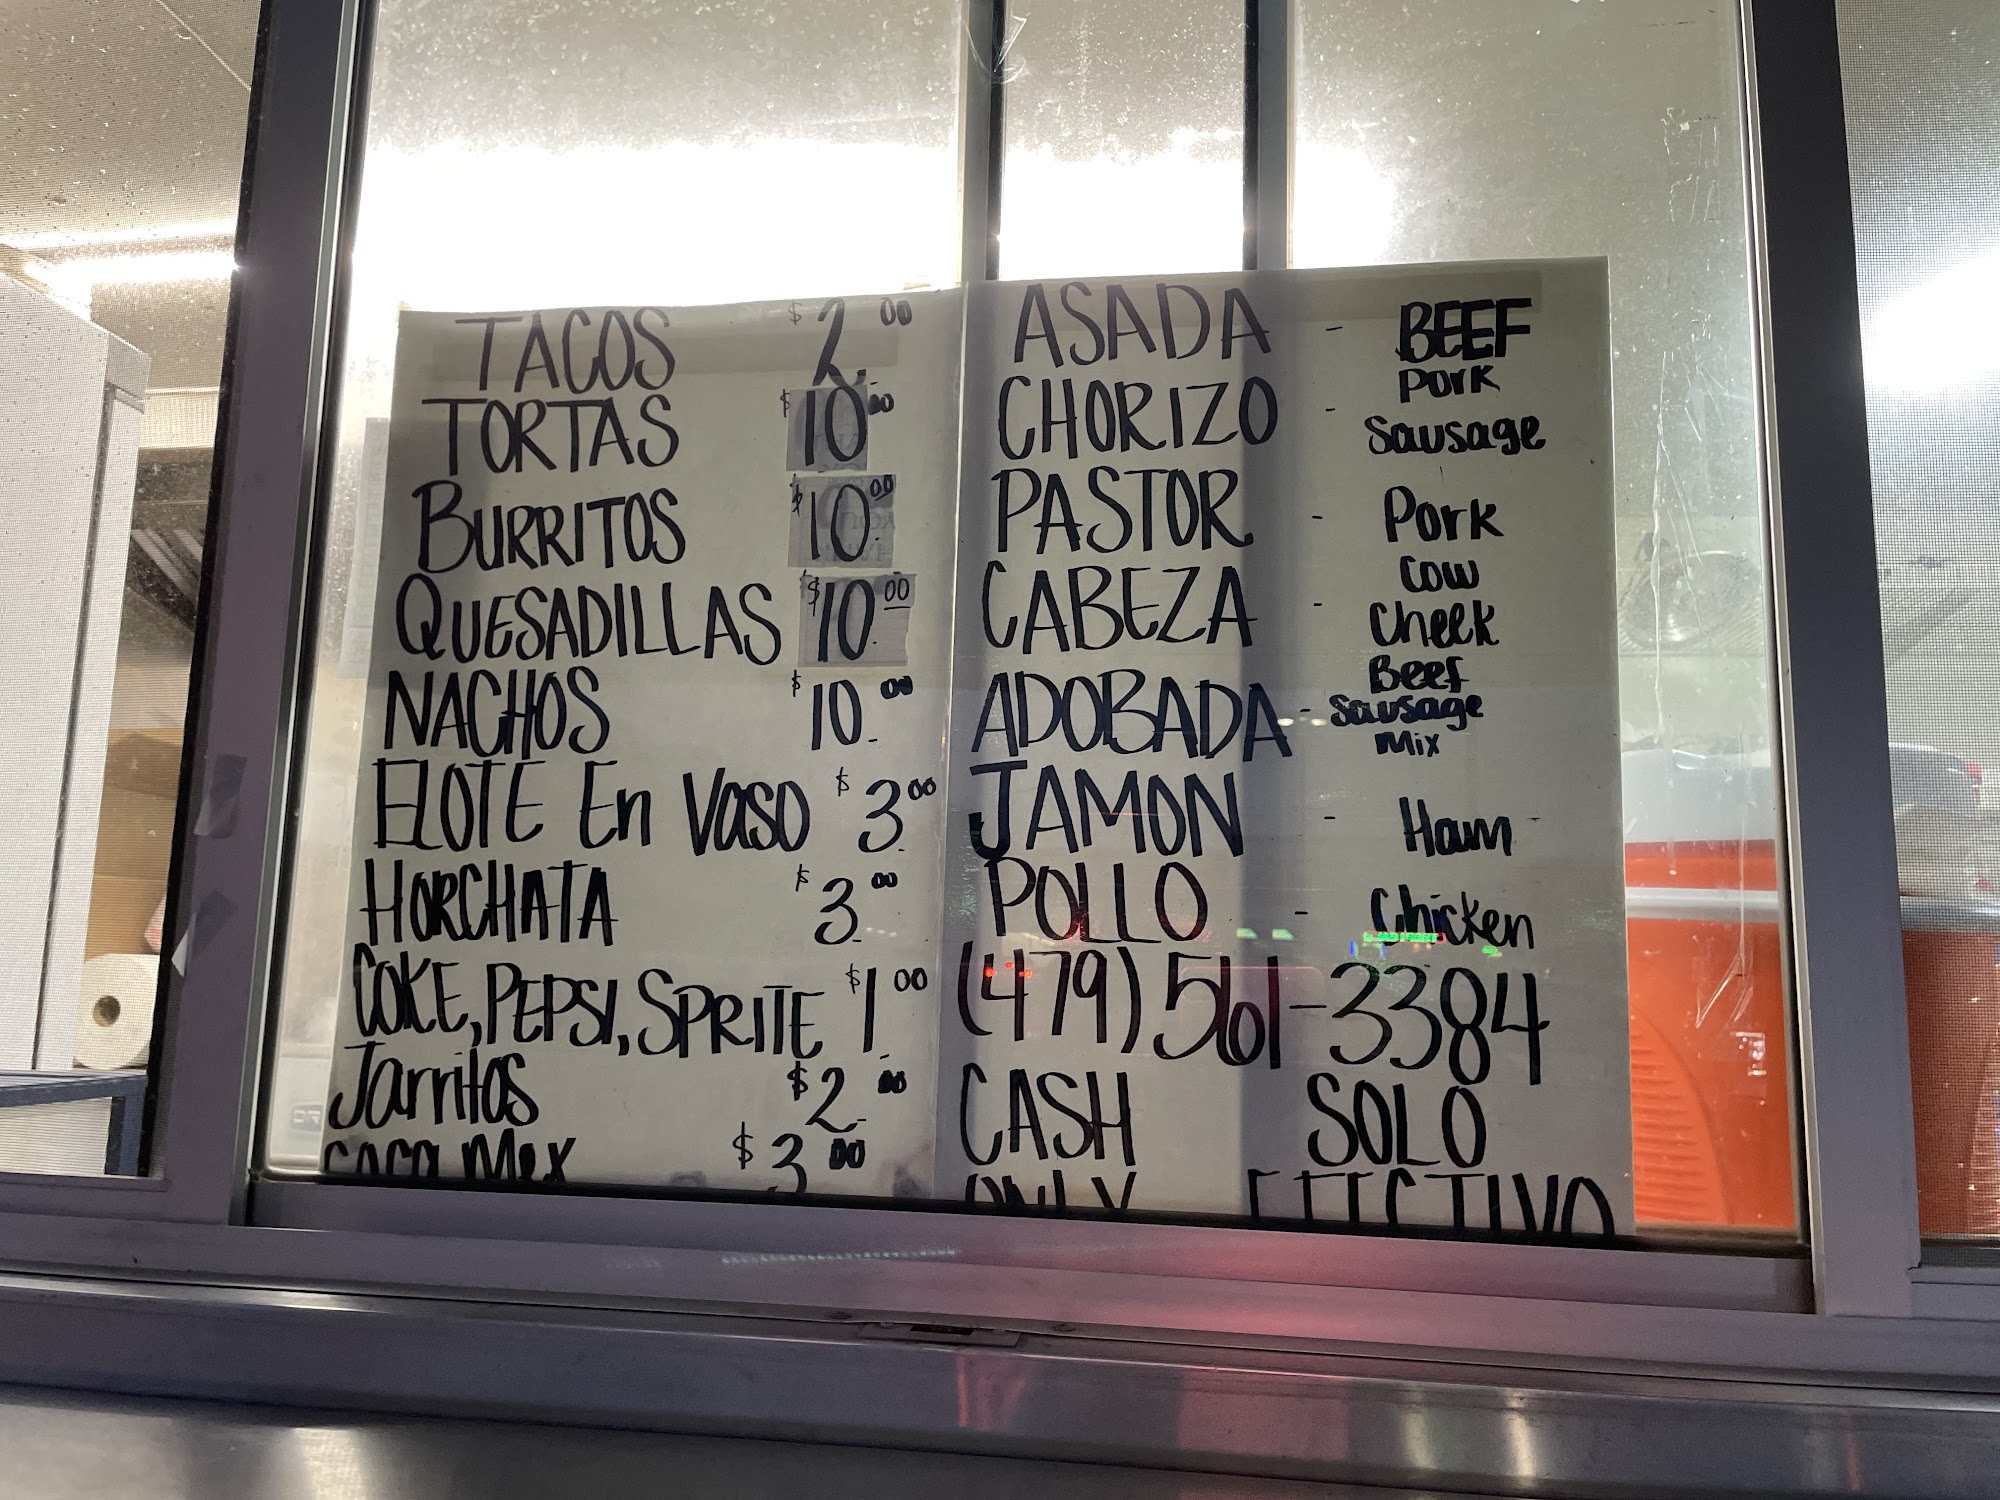 TACOS $2.00
TORTAS $10.00
BURRITOS $10.00
QUESADILLAS $10.00
NACHOS $10.00
ELOTE En Vaso $3.00
HORCHATA $3.00
COKE, PEPSI, SPRITE $1.00
Jarritos $2.00
COCA Mex $3.00
ASADA - BEEF
CHORIZO - Pork Sausage
PASTOR - Pork
CABEZA - Cow Cheek
ADOBADA - Beef Sausage Mix
JAMON - Ham
POLLO - Chicken
(479) 561-3384
CASH SOLO
ONLY EFECTIVO